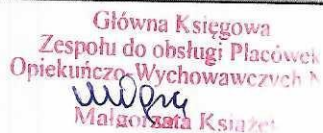 Główna Księgowa
Zespołu do obsługi Placówek
Opiekuńczo-Wychowawczych N
Małgorzata Książek